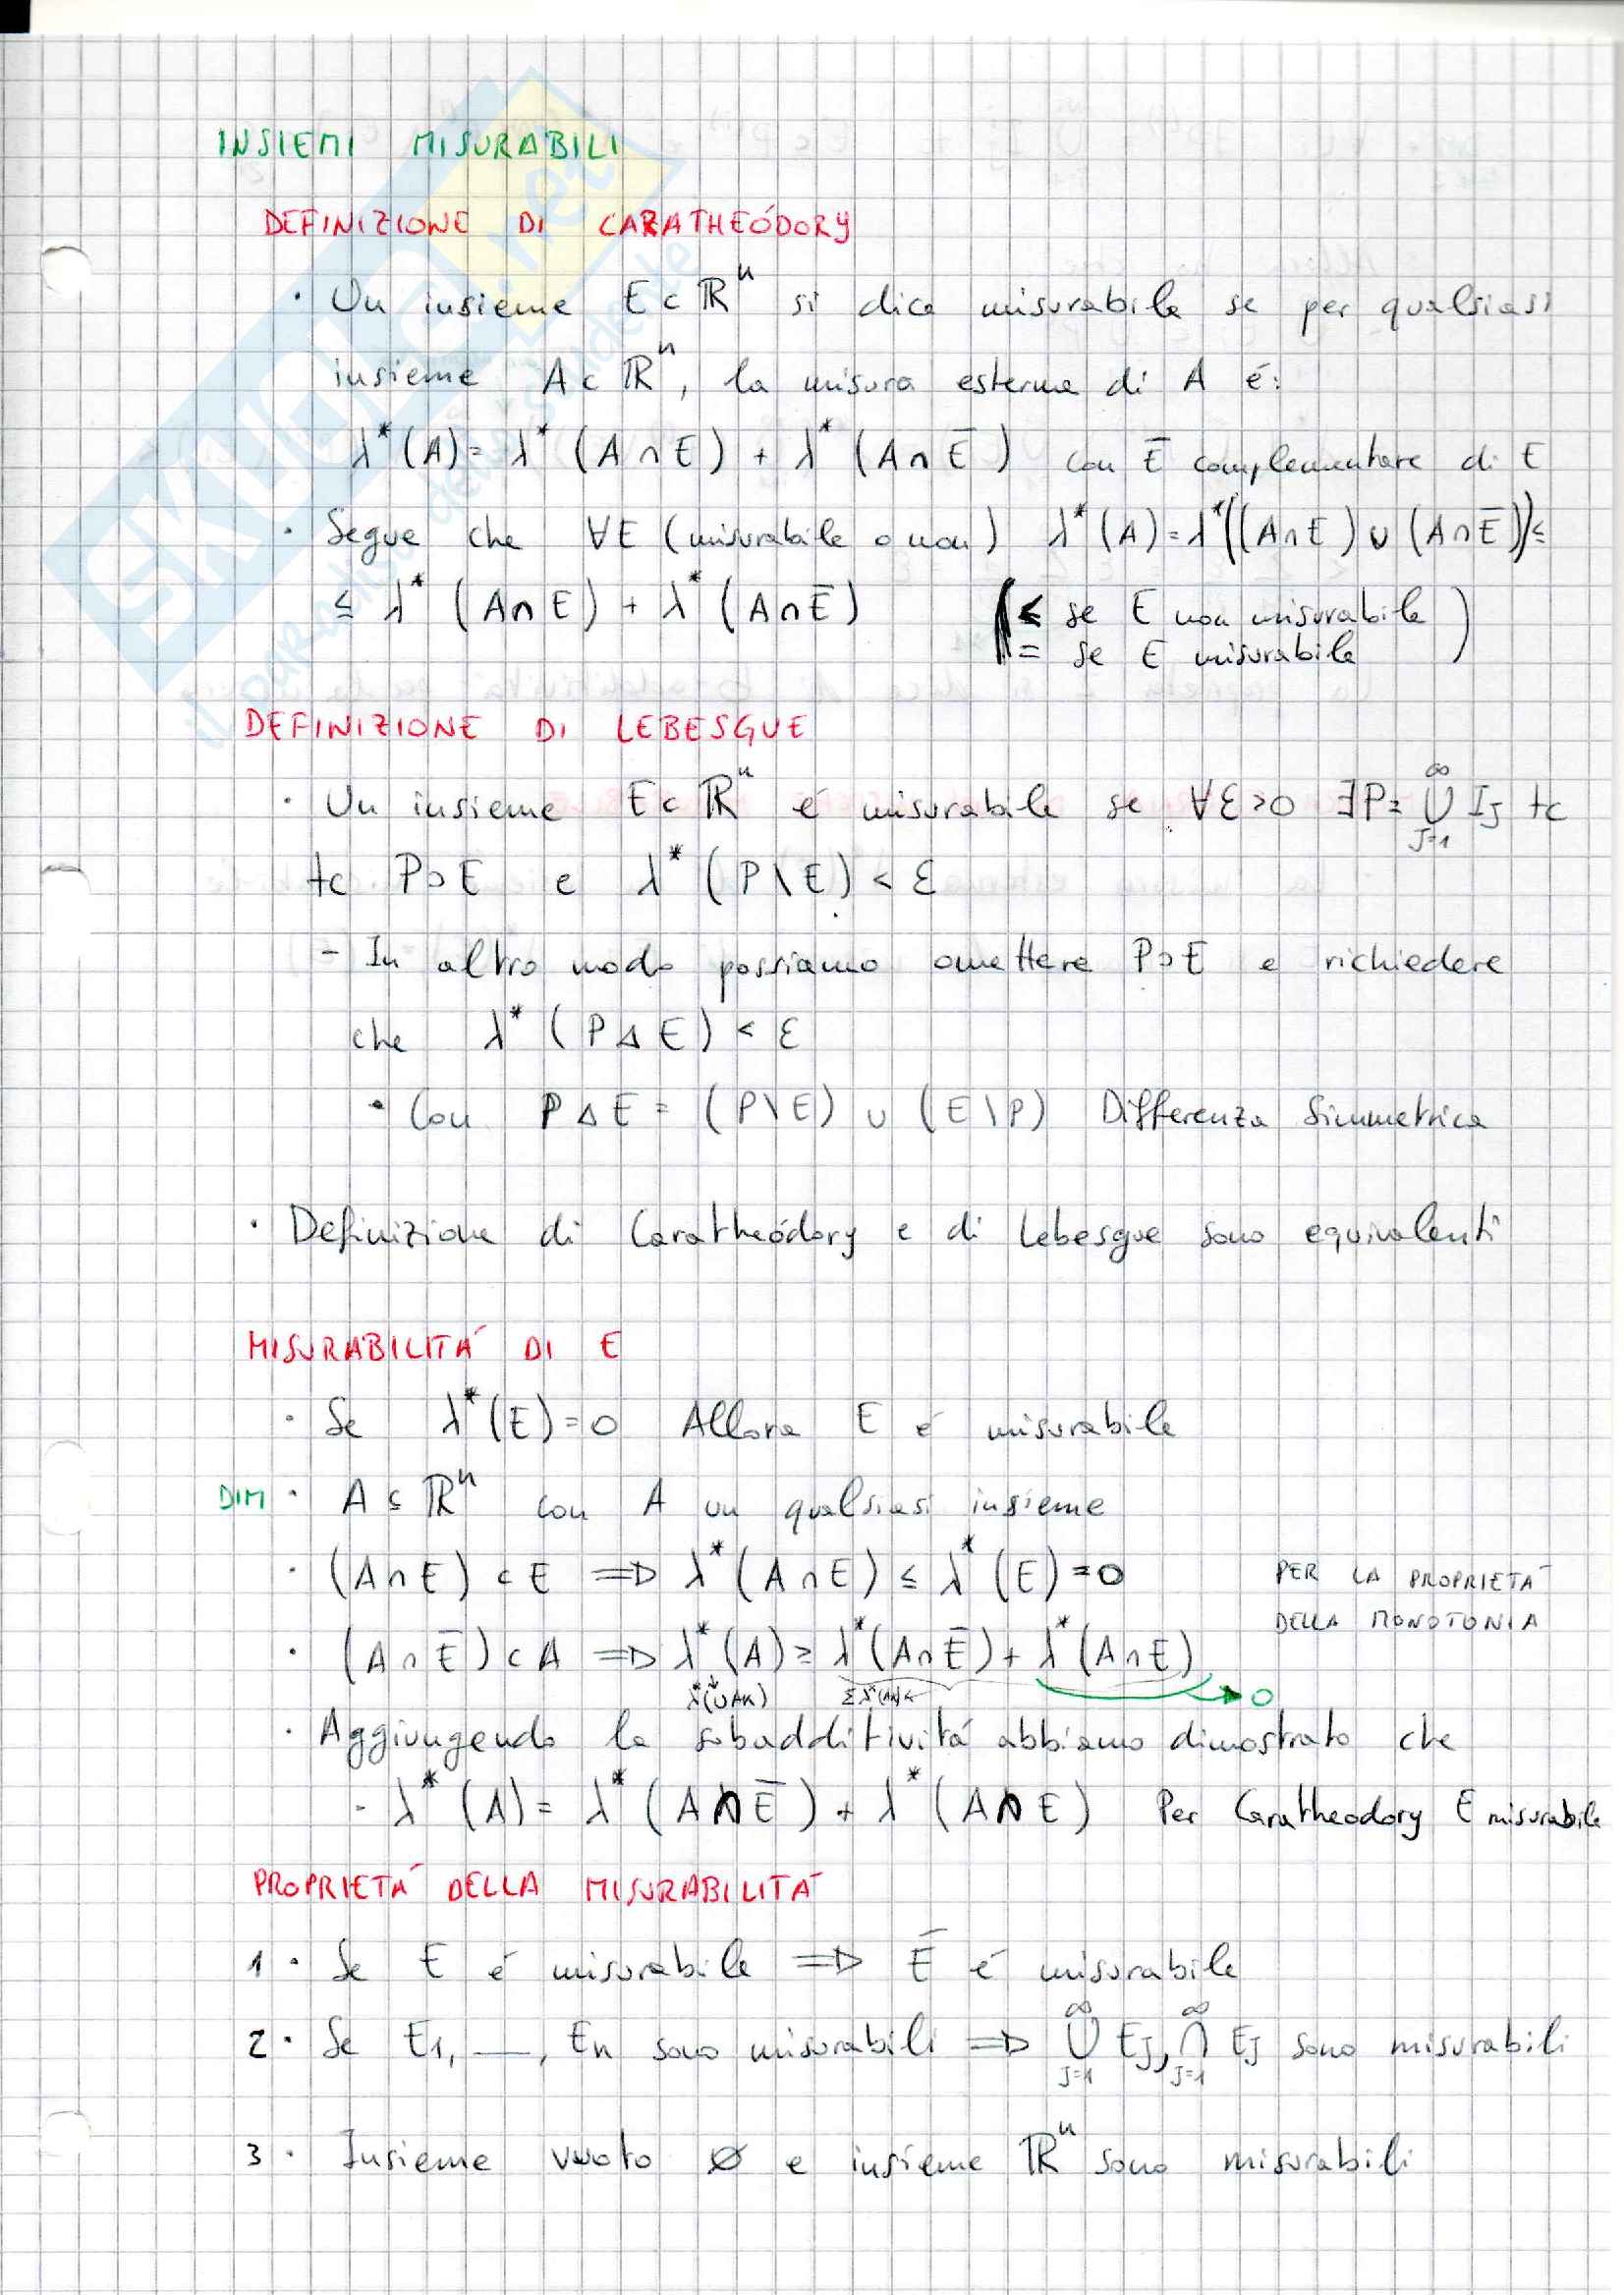 INSIEMI MISURABILI
DEFINIZIONE DI CARATHEÓDORY
· Un insieme E⊂ℝⁿ si dice misurabile se per qualsiasi
insieme A⊂ℝⁿ, la misura esterna di A é:
λ*(A)= λ*(A∩E) + λ*(A∩Ē) con Ē complementare di E
· Segue che ∀E (misurabile o non) λ*(A)=λ*((A∩E)∪(A∩Ē))≤
≤ λ*(A∩E) + λ*(A∩Ē) (≤ se E non misurabile
= se E misurabile)
DEFINIZIONE DI LEBESGUE
· Un insieme E⊂ℝⁿ é misurabile se ∀ε>0 ∃P=∪_{J=1}^{∞} IJ tc
tc P⊃E e λ*(P\E)<ε
- In altro modo possiamo omettere P⊃E e richiedere
che λ*(P△E)<ε
· Con P△E = (P\E) ∪ (E\P) Differenza Simmetrica
· Definizione di Caratheódory e di Lebesgue sono equivalenti
MISURABILITÁ DI E
· Se λ*(E)=0 Allora E é misurabile
DIM · A⊆ℝⁿ con A un qualsiasi insieme
· (A∩E)⊂E ⇒ λ*(A∩E)≤λ*(E)=0 PER LA PROPRIETÁ
DELLA MONOTONIA
· (A∩Ē)⊂A ⇒ λ*(A)≥λ*(A∩Ē)+λ*(A∩E)
λ*(∪AK) Σλ*(AK) 0
· Aggiungendo la subadditivitá abbiamo dimostrato che
- λ*(A)= λ*(A∩Ē) + λ*(A∩E) Per Caratheodory E misurabile
PROPRIETÁ DELLA MISURABILITÁ
1 · Se E é misurabile ⇒ Ē é misurabile
2 · Se E1, —, En sono misurabili ⇒ ∪_{J=1}^{∞} EJ, ∩_{J=1}^{∞} EJ sono misurabili
3 · Insieme vuoto ∅ e insieme ℝⁿ sono misurabili
SKUOLA.net
il paradiso dello studente